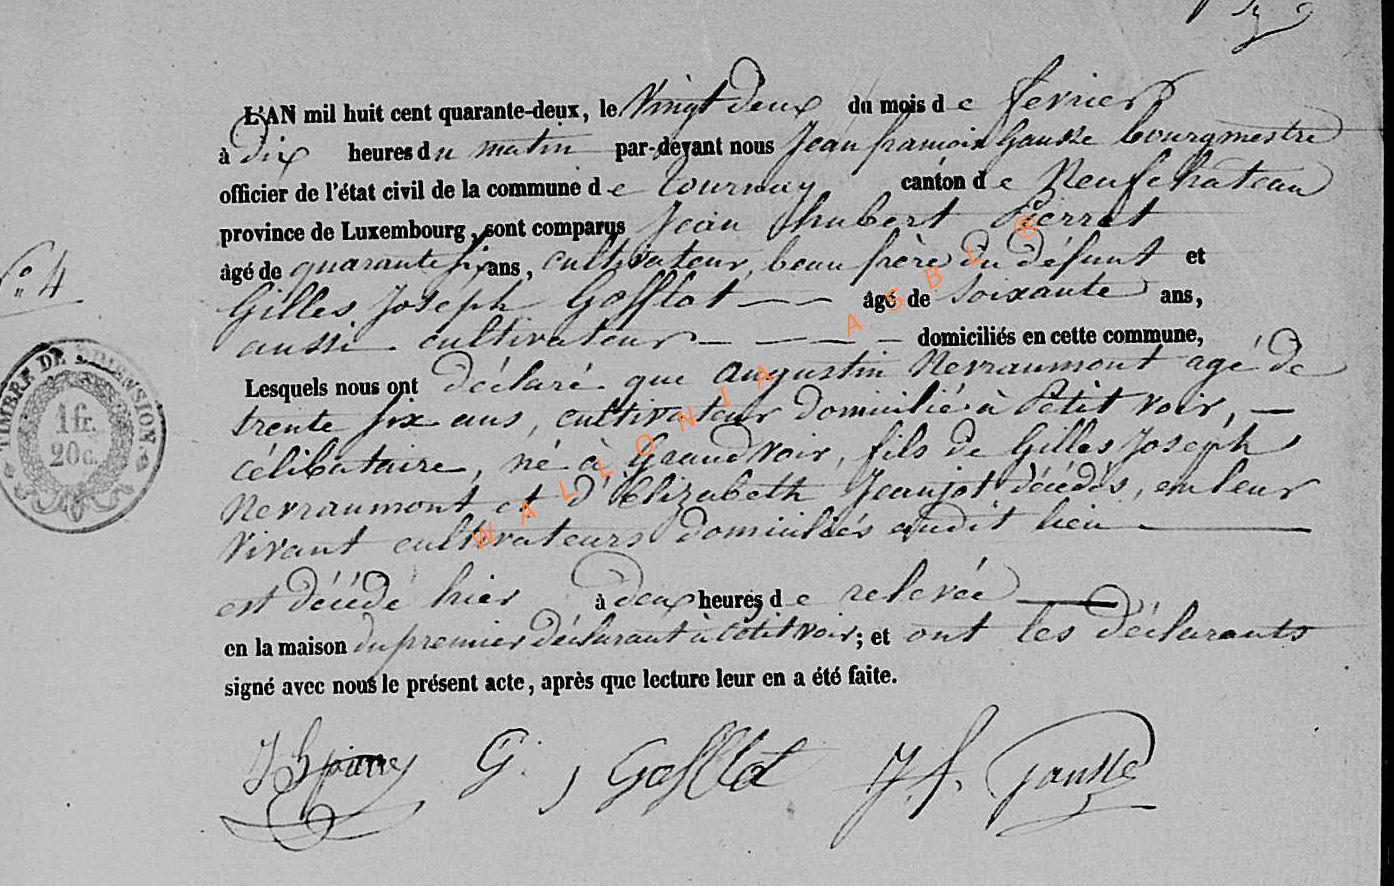 L'AN mil huit cent quarante-deux, le Vingt deux du mois de février
à dix heures du matin par-devant nous Jean françois Gausse bourgmestre
officier de l'état civil de la commune de Tournay canton de Neufchateau
province de Luxembourg, sont comparus Jean hubert Pierret
âgé de quarante six ans, cultivateur, beau frère du défunt et
N° 4
Gilles Joseph Gofflot âgé de soixante ans,
aussi cultivateur domiciliés en cette commune,
Lesquels nous ont déclaré que augustin Nevraumont agé de
trente six ans, cultivateur domicilié à Petit voir,
célibataire, né à Grandvoir, fils de Gilles Joseph
Nevraumont et d'Elizabeth Jeanjot décédés, en leur
vivant cultivateurs domiciliés audit lieu
est décédé hier à deux heures de relevée
en la maison du premier déclarant à petit voir; et ont les déclarants
signé avec nous le présent acte, après que lecture leur en a été faite.
G. Gofflot J. f. Gausse
TIMBRE DE DIMENSION.
1 fr.
20 c.
WALLONIA ASBL ®